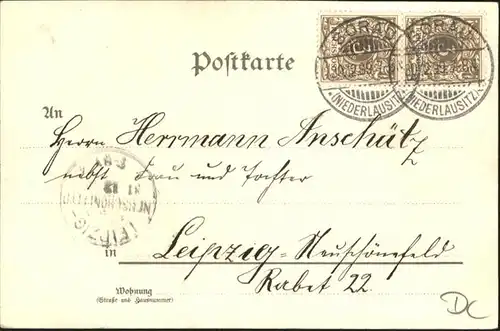 SORAU
SORAU
(NIEDERLAUSITZ)
(NIEDERLAUSITZ)
Postkarte
An
Herrn Herrmann Anschütz
nebst Frau und Tochter
LEIPZIG-
31 12
in Leipzig-Neuschönefeld
Rabet 22.
Wohnung
(Straße und Hausnummer)
DC